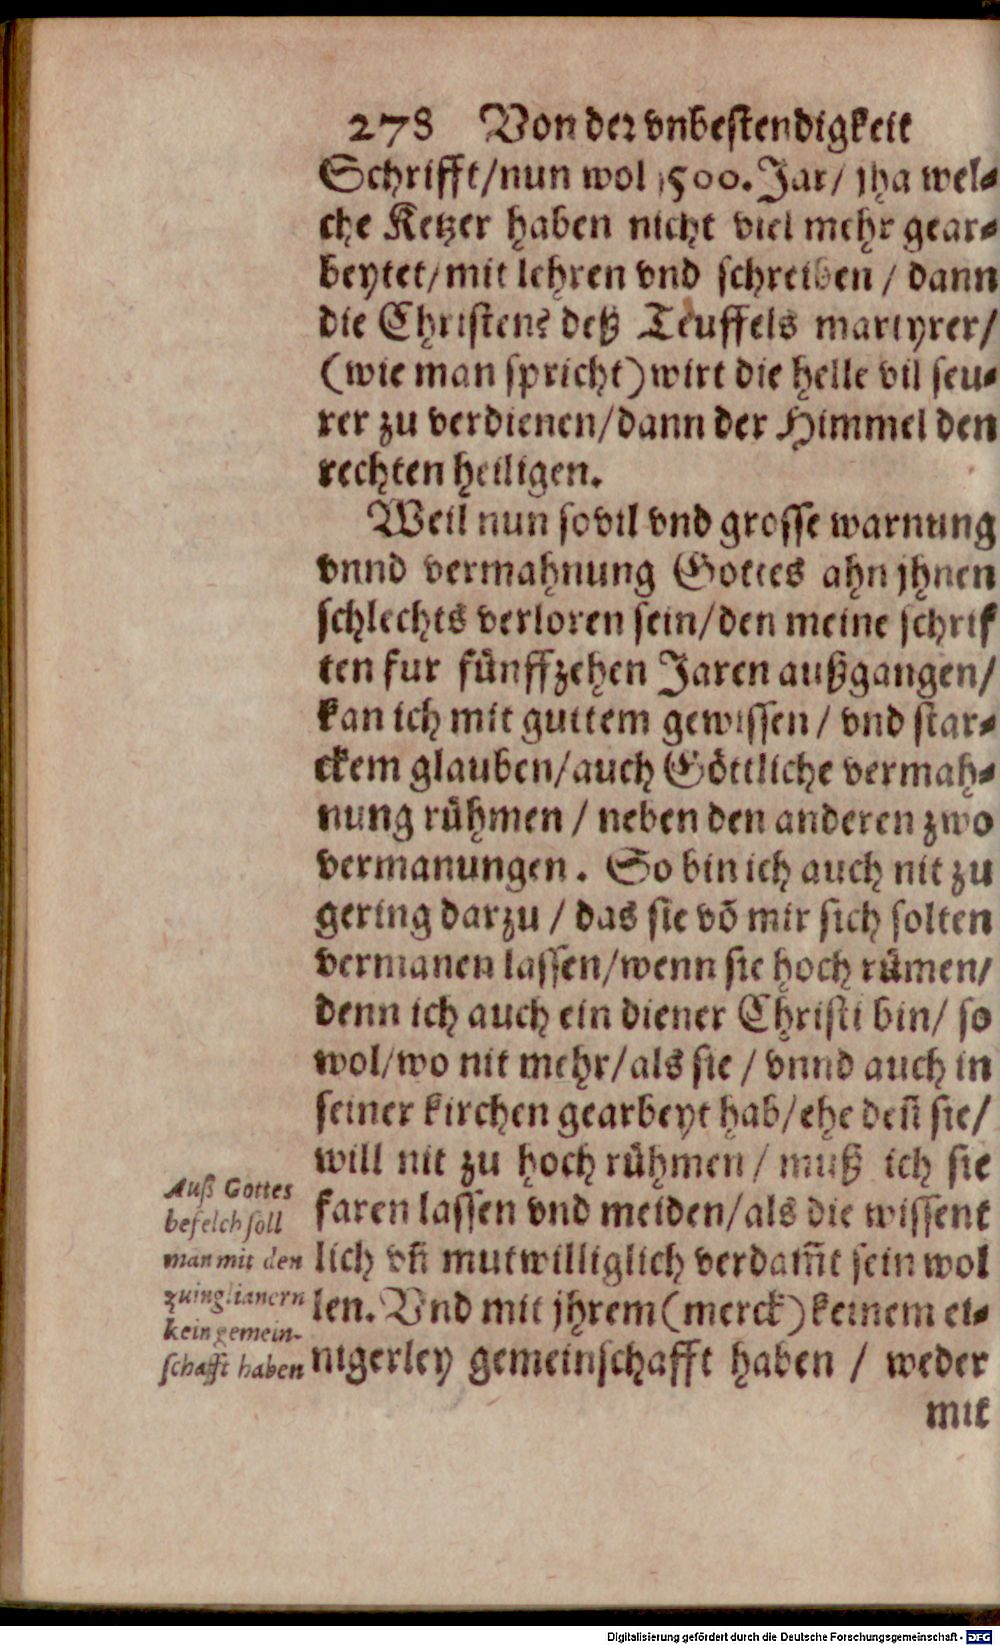 278 Von der vnbestendigkeit
Schrifft/nun wol 1500. Jar/ jha wel⸗
che Ketzer haben nicht viel mehr gear⸗
beytet/mit lehren vnd schreiben / dann
die Christen? deß Teuffels martyrer/
(wie man spricht) wirt die helle vil seu⸗
rer zu verdienen/dann der Himmel den
rechten heiligen.
Weil nun sovil vnd grosse warnung
vnnd vermahnung Gottes ahn jhnen
schlechts verloren sein/den meine schrif
ten fur fünffzehen Jaren außgangen/
kan ich mit guttem gewissen / vnd star⸗
ckem glauben/auch Göttliche vermah⸗
nung rühmen / neben den anderen zwo
vermanungen. So bin ich auch nit zu
gering darzu / das sie võ mir sich solten
vermanen lassen/wenn sie hoch rümen/
denn ich auch ein diener Christi bin/ so
wol/wo nit mehr/als sie / vnnd auch in
seiner kirchen gearbeyt hab/ehe deñ sie/
will nit zu hoch rühmen / muß ich sie
Auß Gottes
befelch soll
man mit den
zuinglianern
kein gemein-
schafft haben
faren lassen vnd meiden/als die wissent
lich vñ mutwilliglich verdam̃t sein wol
len. Vnd mit jhrem (merck) keinem ei⸗
nigerley gemeinschafft haben / weder
mit
Digitalisierung gefördert durch die Deutsche Forschungsgemeinschaft - DFG